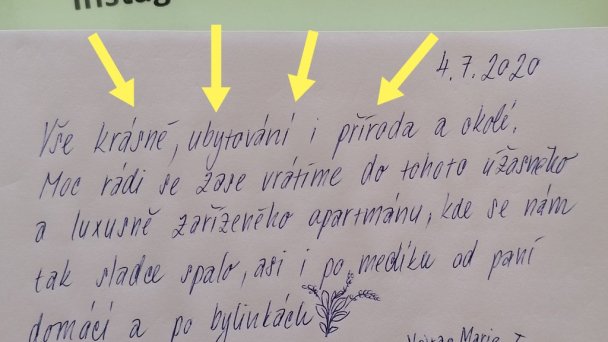 4.7.2020
Vše krásné, ubytování i příroda a okolí.
Moc rádi se zase vrátíme do tohoto úžasného
a luxusně zařízeného apartmánu, kde se nám
tak sladce spalo, asi i po medíku od paní
domácí a po bylinkách